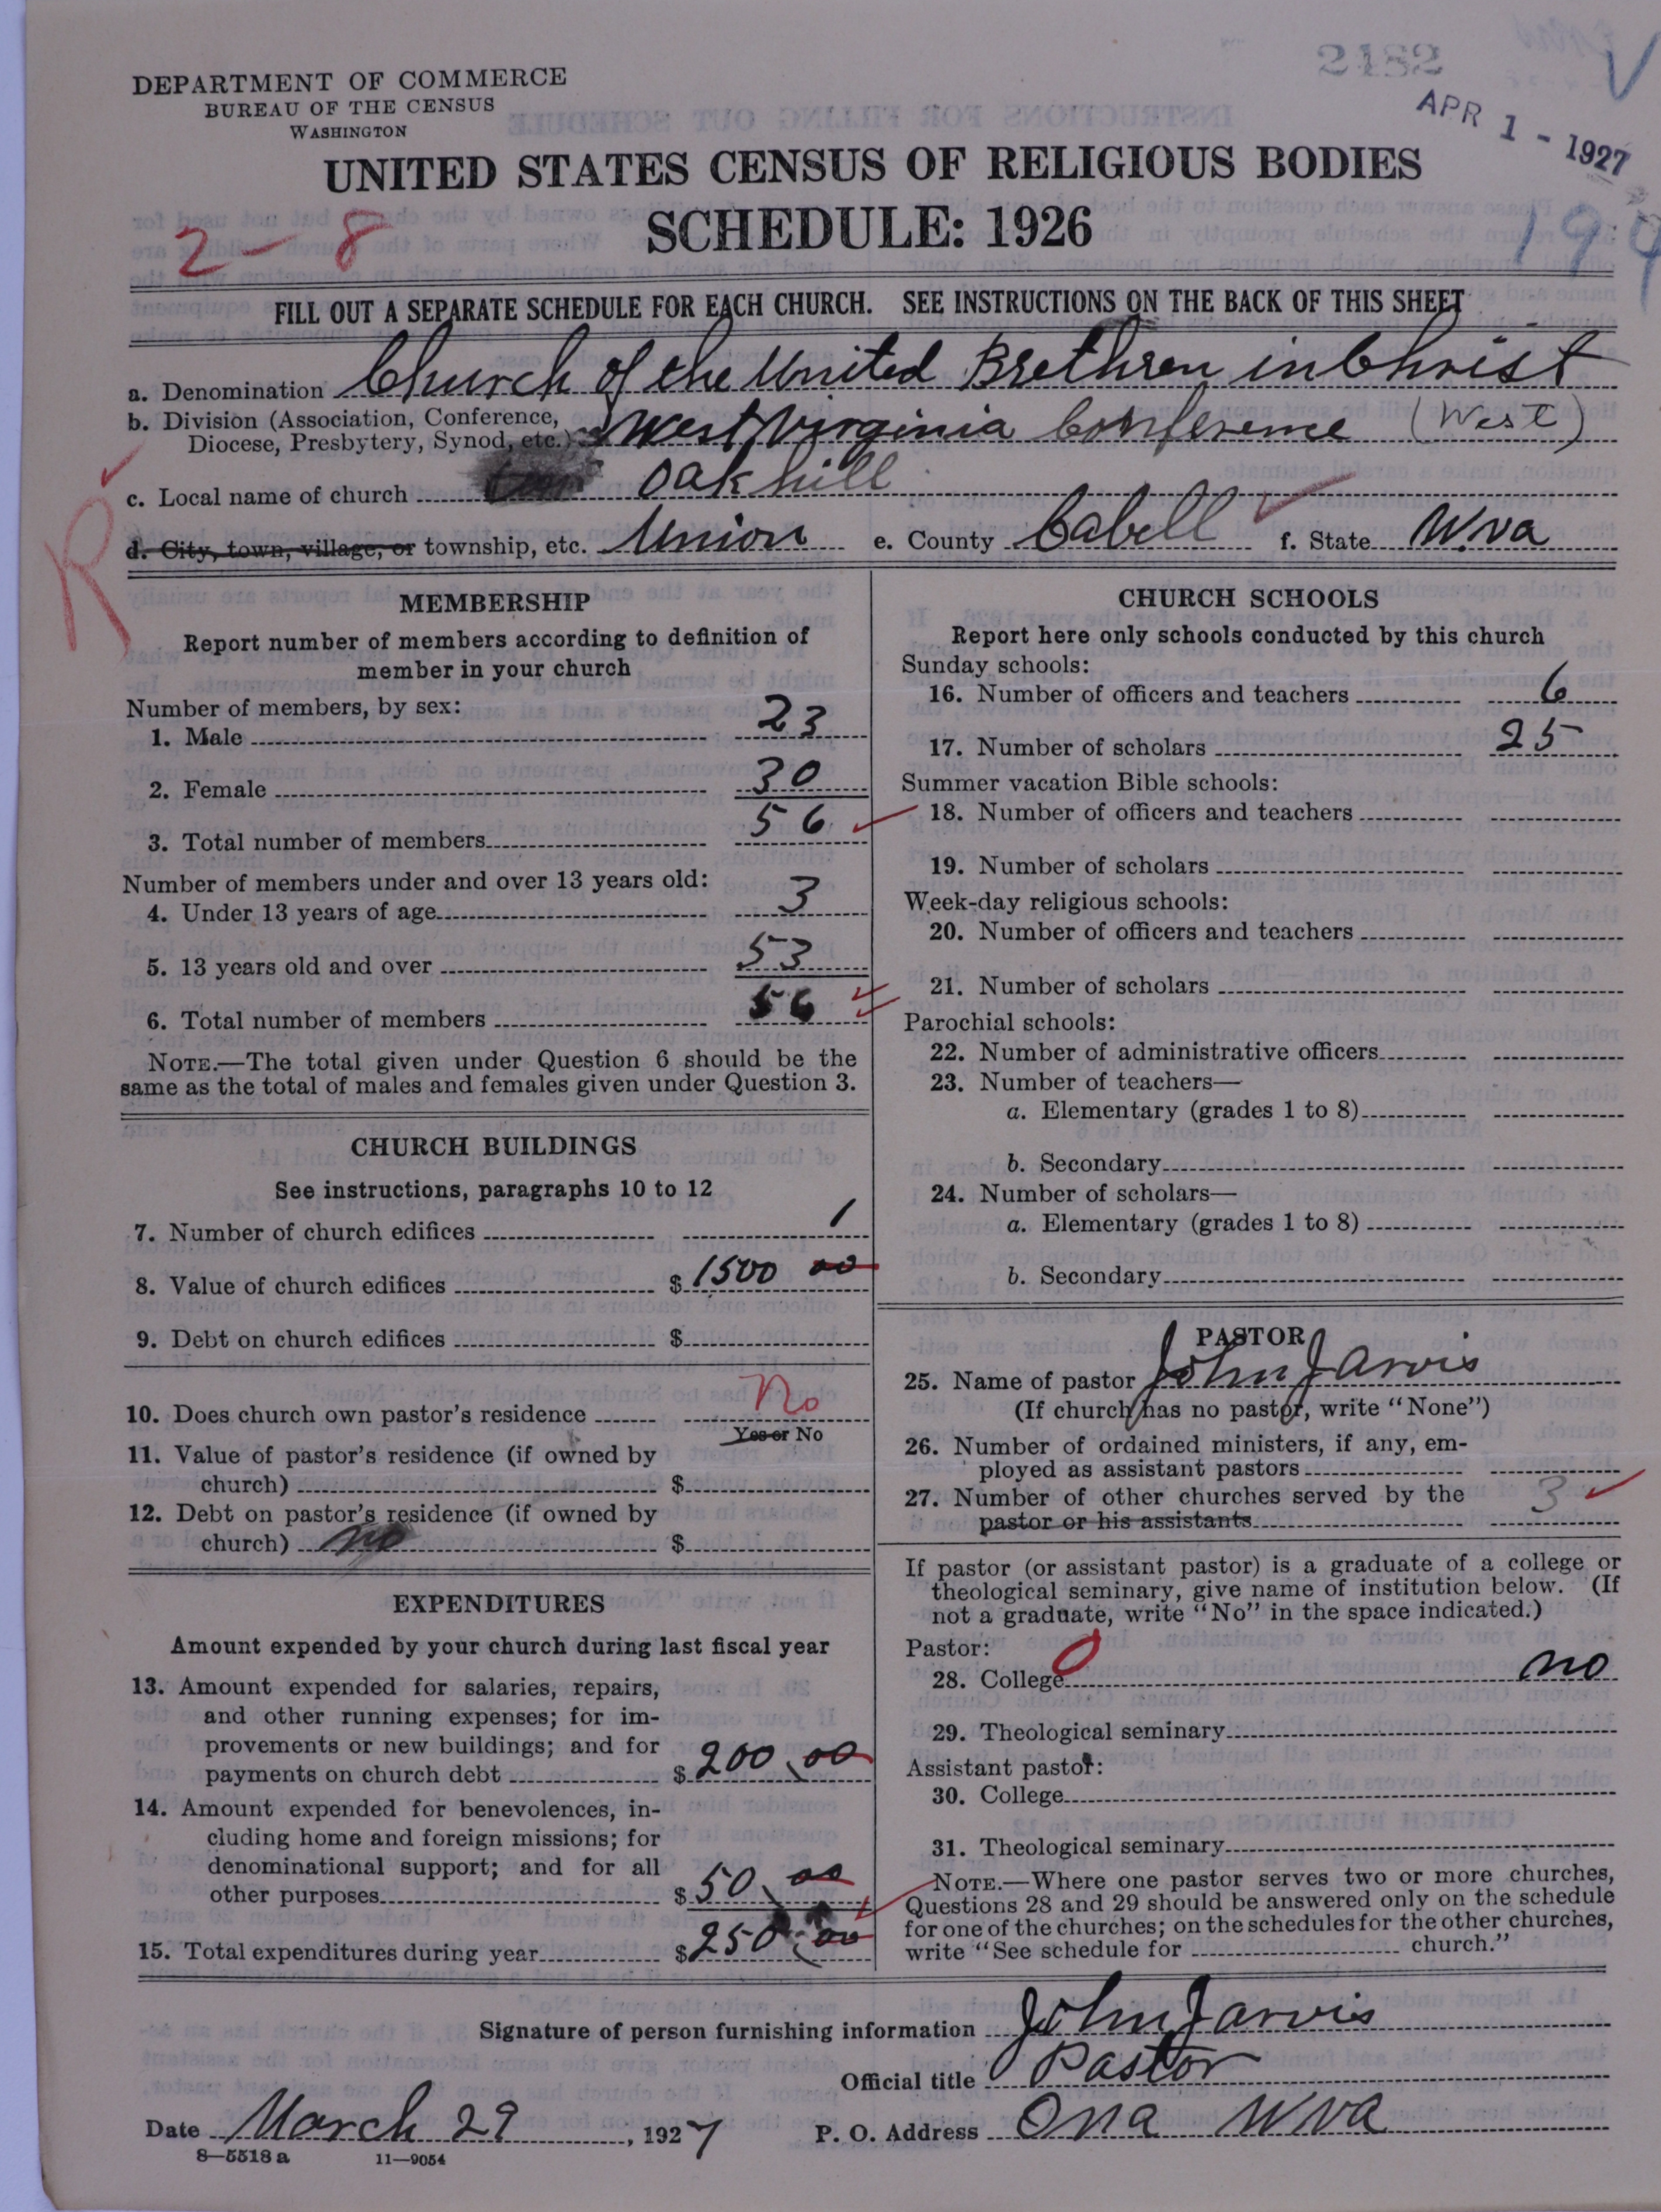 2182
APR 1 - 1927
DEPARTMENT OF COMMERCE
BUREAU OF THE CENSUS
WASHINGTON
UNITED STATES CENSUS OF RELIGIOUS BODIES
SCHEDULE: 1926
2-8
194
FILL OUT A SEPARATE SCHEDULE FOR EACH CHURCH. SEE INSTRUCTIONS ON THE BACK OF THIS SHEET
a. Denomination Church of the United Brethren in Christ
b. Division (Association, Conference,
Diocese, Presbytery, Synod, etc.) West Virginia Conference (West)
c. Local name of church Oak hill
d. City, town, village, or township, etc. Union e. County Cabell f. State W.va
R
MEMBERSHIP
Report number of members according to definition of
member in your church
Number of members, by sex:
1. Male 23
2. Female 30
3. Total number of members 56
Number of members under and over 13 years old:
4. Under 13 years of age 3
5. 13 years old and over 53
6. Total number of members 56
NOTE.—The total given under Question 6 should be the
same as the total of males and females given under Question 3.
CHURCH BUILDINGS
See instructions, paragraphs 10 to 12
7. Number of church edifices 1
8. Value of church edifices $1500 00
9. Debt on church edifices $
10. Does church own pastor's residence No
Yes or No
11. Value of pastor's residence (if owned by
church) $
12. Debt on pastor's residence (if owned by
church) no $
EXPENDITURES
Amount expended by your church during last fiscal year
13. Amount expended for salaries, repairs,
and other running expenses; for im-
provements or new buildings; and for
payments on church debt $200.00
14. Amount expended for benevolences, in-
cluding home and foreign missions; for
denominational support; and for all
other purposes $50.00
15. Total expenditures during year $250.00
CHURCH SCHOOLS
Report here only schools conducted by this church
Sunday schools:
16. Number of officers and teachers 6
17. Number of scholars 25
Summer vacation Bible schools:
18. Number of officers and teachers
19. Number of scholars
Week-day religious schools:
20. Number of officers and teachers
21. Number of scholars
Parochial schools:
22. Number of administrative officers
23. Number of teachers—
a. Elementary (grades 1 to 8)
b. Secondary
24. Number of scholars—
a. Elementary (grades 1 to 8)
b. Secondary
PASTOR
25. Name of pastor John Jarvis
(If church has no pastor, write "None")
26. Number of ordained ministers, if any, em-
ployed as assistant pastors
27. Number of other churches served by the
pastor or his assistants 3
If pastor (or assistant pastor) is a graduate of a college or
theological seminary, give name of institution below. (If
not a graduate, write "No" in the space indicated.)
Pastor:
28. College 0 no
29. Theological seminary
Assistant pastor:
30. College
31. Theological seminary
NOTE.—Where one pastor serves two or more churches,
Questions 28 and 29 should be answered only on the schedule
for one of the churches; on the schedules for the other churches,
write "See schedule for church."
Signature of person furnishing information John Jarvis
Official title Pastor
Date March 29, 1927 P. O. Address Ona W va
8—5518 a 11—9054